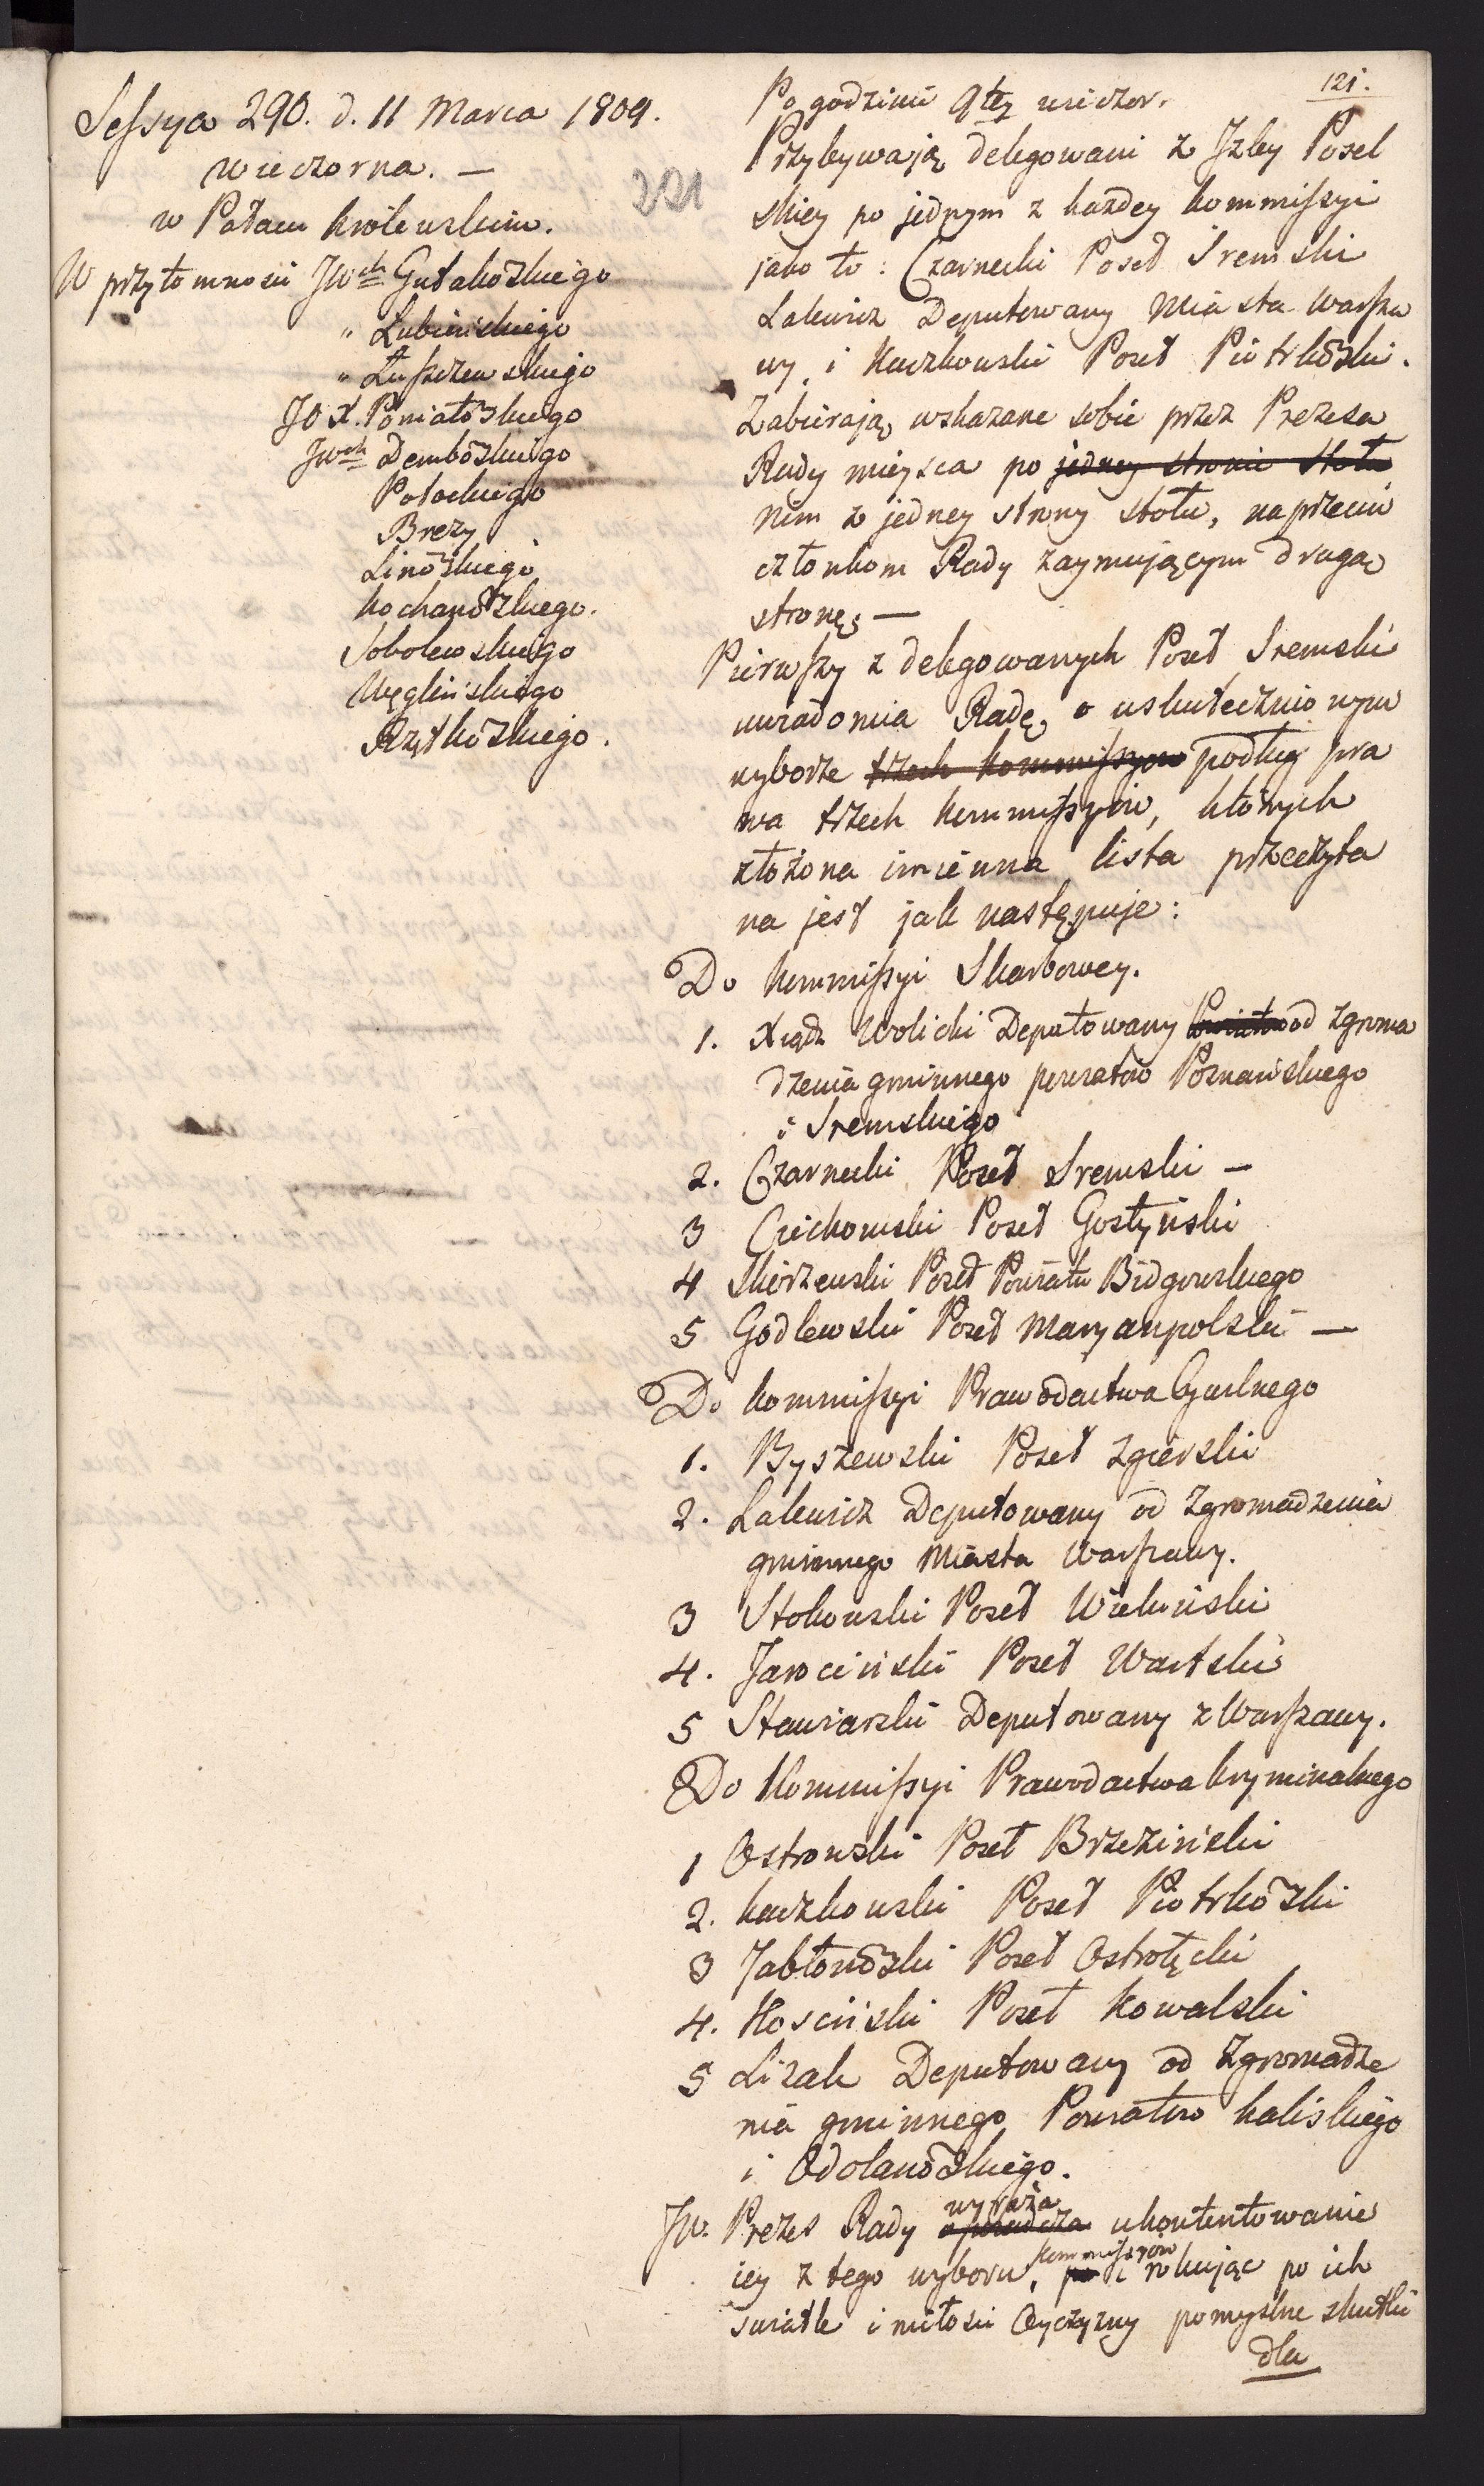 Sessya 290. d. 11 Marca 1809.
wieczorna. —
w Pałacu Królewskim.
W przytomności JW<sup>ch</sup> Gutakōskiego
" Lubieńskiego
" Łuszczewskiego
JO X. Poniatōskiego
JW<sup>ch</sup> Dembōskiego
Potockiego
Brezy
Linōskiego
Kochanōskiego.
Sobolewskiego
Węglińskiego
Rzętkōskiego.
221
121.
Po godzinie 9tey wieczor.
Przybywają delegowani z Izby Posel
skiey po jednym z każdey Kommissyi
jako to: Czarnecki Poseł Sremski
Lalewicz Deputowany Miasta Warsza
wy, i Kaczkowski Poseł Piotrkōski.
Zabierają wskazane sobie przez Prezesa
Rady mieysca po jedney stronie stołu
nim z jedney strony stołu, naprzeciw
członkom Rady zaymującym drugą
stronę; —
Pierwszy z delegowanych Poseł Sremski
uwiadomia Radę, o uskutecznionym
wyborze trzech Kommissyow podług pra
wa trzech Kommissyów, których
złożona imienna lista przeczyta
na jest jak następuje:
Do Kommissyi Skarbowey.
1. Xiądz Wolicki Deputowany Powiatów od Zgroma
dzenia gminnego powiatów Poznańskiego
i Sremskiego
2. Czarnecki Poseł Sremski —
3 Cichowski Poseł Gostyński
4 Skórzewski Poseł Powiatu Bidgowskiego
5 Godlewski Poseł Maryanpolski —
Do Kommissyi Prawodactwa Cywilnego
1. Byszewski Poseł Zgierski
2. Lalewicz Deputowany od Zgromadzenia
gminnego Miasta Warszawy.
3 Stokowski Poseł Wieluński
4. Jarociński Poseł Wartski
5 Stawiarski Deputowany z Warszawy.
Do Kommissyi Prawodactwa Kryminalnego
1 Ostrowski Poseł Brzeziński
2. Kaczkowski Poseł Piotrkōski
3 Jabłonōski Poseł Ostrołęcki
4. Kosciński Poseł Kowalski
5 Lizak Deputowany od Zgromadze
nia gminnego Powiatów Kaliskiego
i Odolanōskiego.
wyraża
JW. Prezes Rady oświadcza ukontentowanie
Kommissyow
iey z tego wyboru, po i rokując po ich
swiatle i miłości Oyczyzny pomyślne skutki
dla